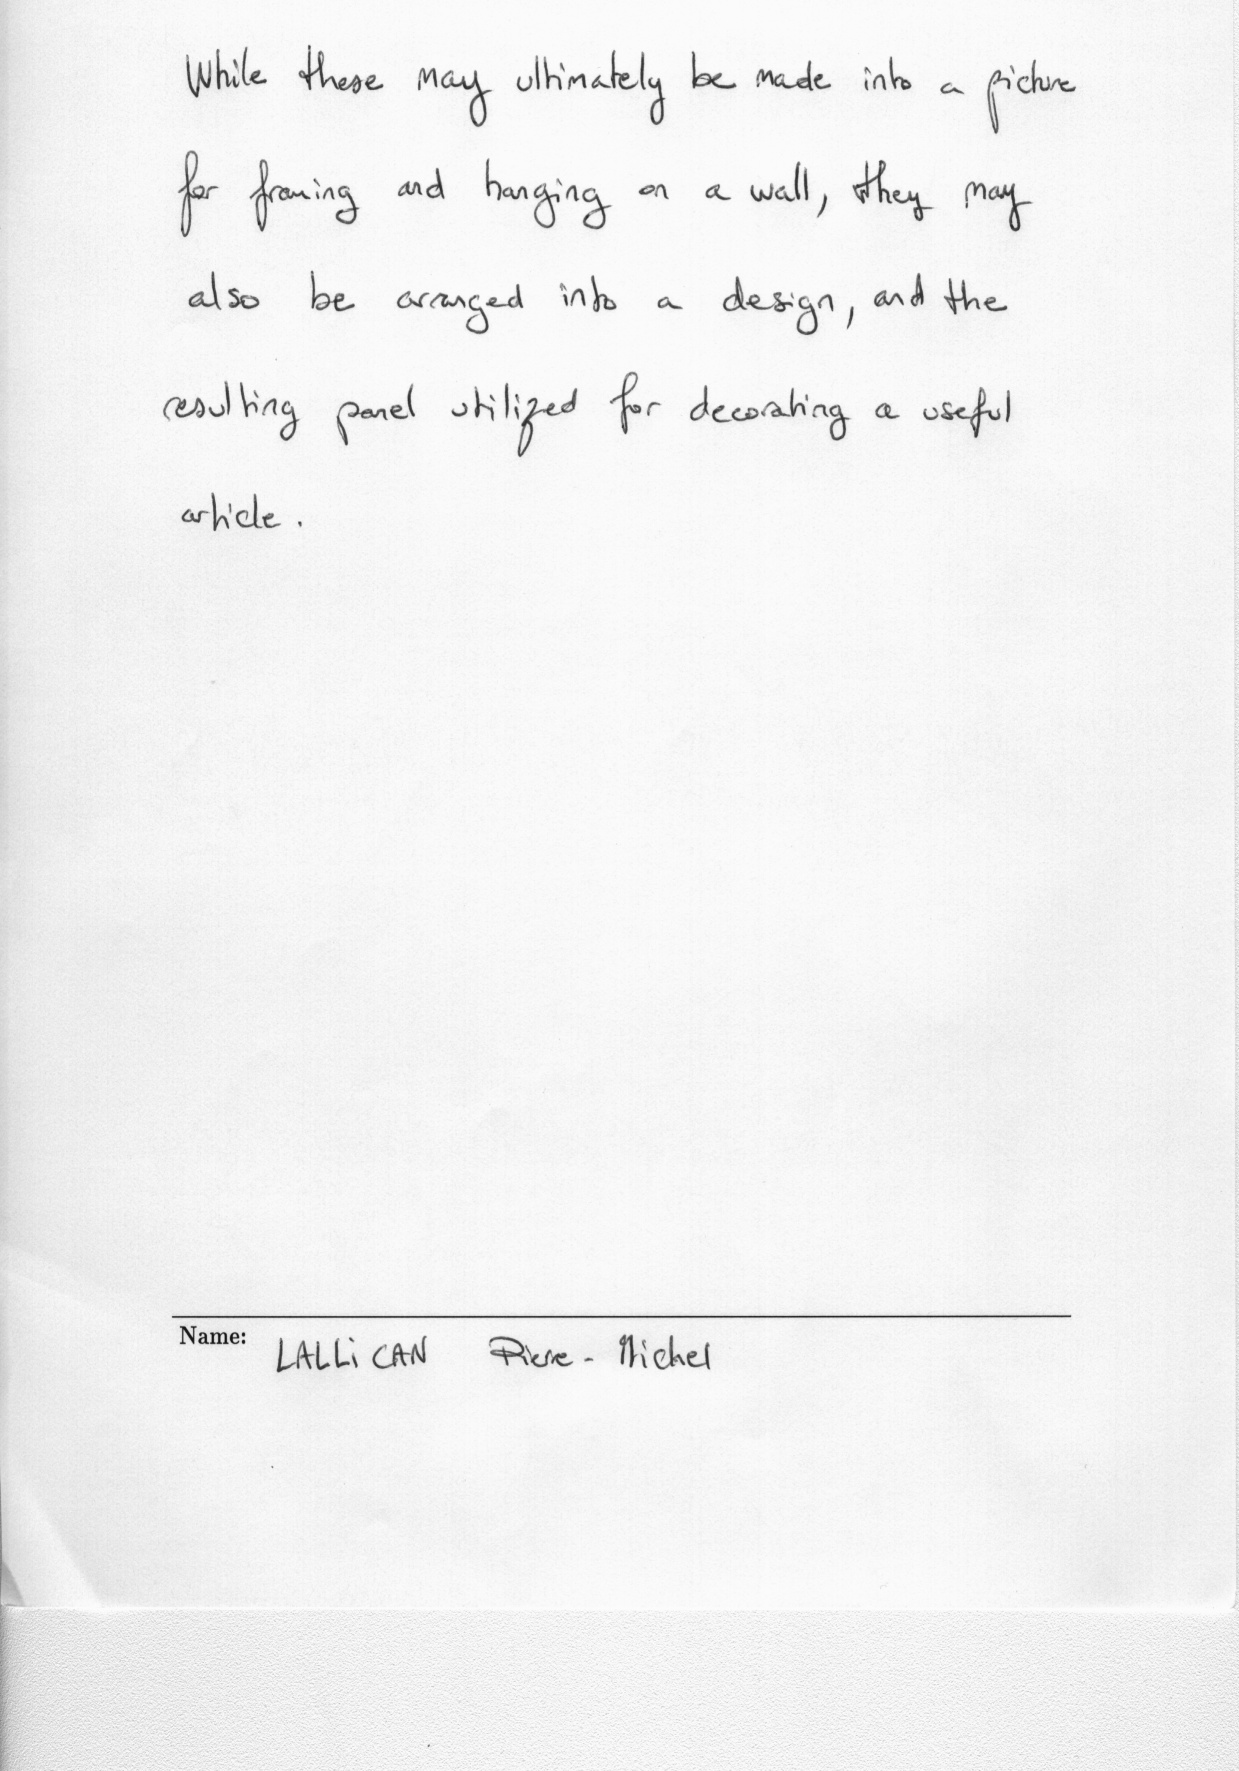 While these may ultimately be made into a picture
for framing and hanging on a wall, they may
also be arranged into a design, and the
resulting panel utilized for decorating a useful
article.
Name: LALLiCAN Pierre-Michel